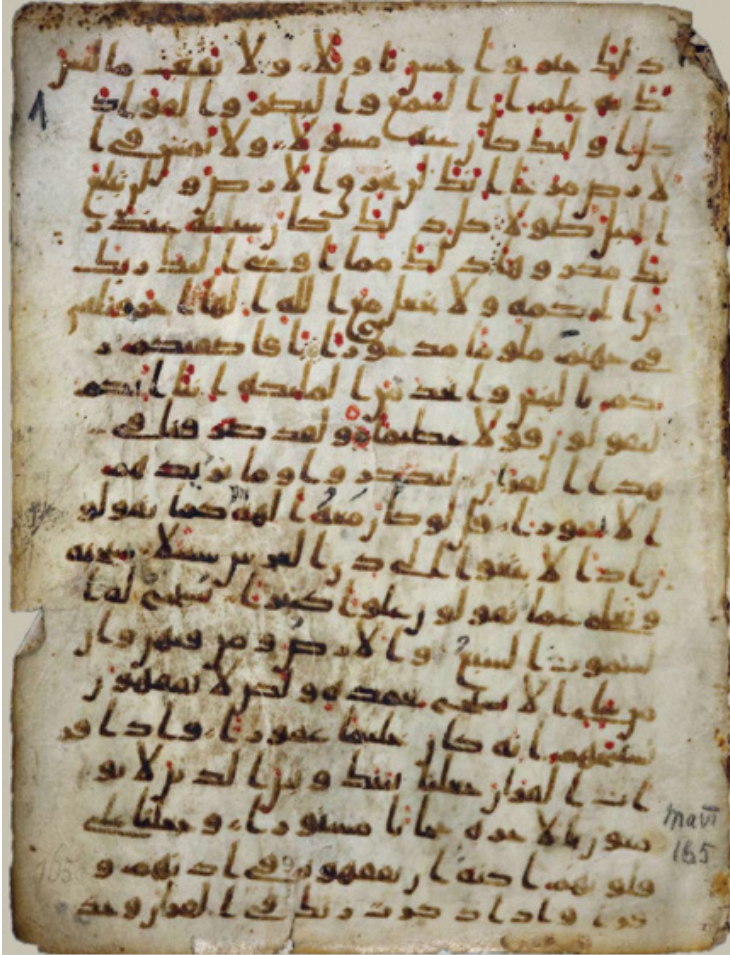 ذلك خير واحسن تاويلا ولا تقف ما ليس
لك به علم ان السمع والبصر والفواد
كل اولئك كان عنه مسولا ولا تمش في ا
لارض مرحا انك لن تخرق الارض ولن تبلغ
الجبل طولا كل ذلك كان سيئه عند ر
بك مكروها ذلك مما اوحى اليك ربك
من الحكمة ولا تجعل مع الله الها اخر فتلقى
في جهنم ملوما مدحورا افاصفيكم ر
بكم بالبنين واتخذ من الملئكة انثا انكم
لتقولون قولا عظيما ولقد صرفنا في
هذا القران ليذكروا وما يزيدهم
الا نفورا قل لو كان معه الهة كما يقولو
ن اذا لابتغوا الى ذي العرش سبيلا سبحنه
وتعلى عما يقولون علوا كبيرا تسبح له ا
لسموت السبع والارض ومن فيهن وان
من شي الا يسبح بحمده ولكن لا تفقهون
تسبيحهم انه كان حليما غفورا واذا قر
ات القران جعلنا بينك وبين الذين لا يو
منون بالاخرة حجابا مستورا وجعلنا على
قلوبهم اكنة ان يفقهوه وفي اذنهم و
قرا واذا ذكرت ربك في القران وحد
1
mavi
165
165